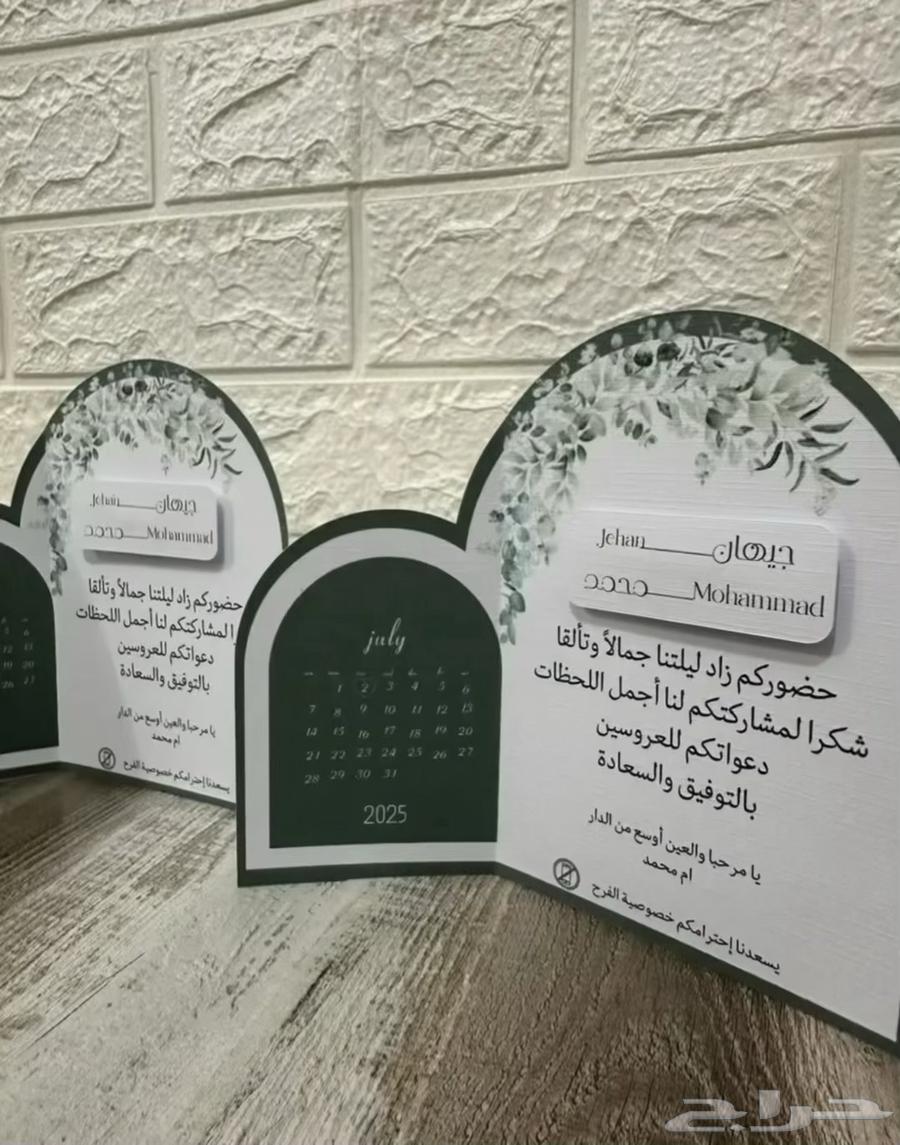 Jehan جيهان
محمد Mohammad
حضوركم زاد ليلتنا جمالاً وتألقا
شكرا لمشاركتكم لنا أجمل اللحظات
دعواتكم للعروسين
بالتوفيق والسعادة
يا مرحبا والعين أوسع من الدار
ام محمد
يسعدنا إحترامكم خصوصية الفرح
july
1 2 3 4 5 6
7 8 9 10 11 12 13
14 15 16 17 18 19 20
21 22 23 24 25 26 27
28 29 30 31
2025
Jehan جيهان
محمد Mohammad
حضوركم زاد ليلتنا جمالاً وتألقا
لمشاركتكم لنا أجمل اللحظات
دعواتكم للعروسين
بالتوفيق والسعادة
يا مرحبا والعين أوسع من الدار
ام محمد
يسعدنا إحترامكم خصوصية الفرح
5 6
12 13
19 20
26 27
حراج